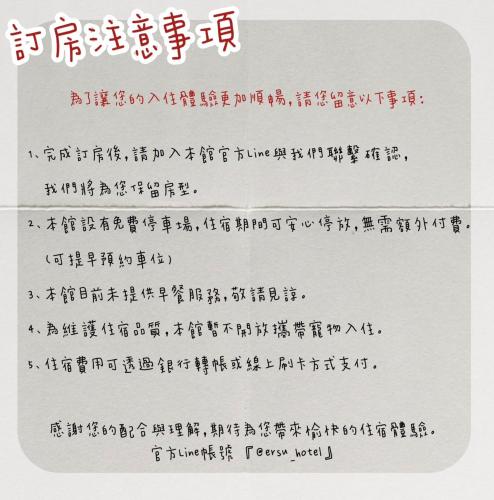 訂房注意事項
為了讓您的入住體驗更加順暢,請您留意以下事項:
1、完成訂房後,請加入本館官方Line與我們聯繫確認,
我們將為您保留房型。
2、本館設有免費停車場,住宿期間可安心停放,無需額外付費。
(可提早預約車位)
3、本館目前未提供早餐服務,敬請見諒。
4、為維護住宿品質,本館暫不開放攜帶寵物入住。
5、住宿費用可透過銀行轉帳或線上刷卡方式支付。
感謝您的配合與理解,期待為您帶來愉快的住宿體驗。
官方Line帳號『@ersu_hotel』